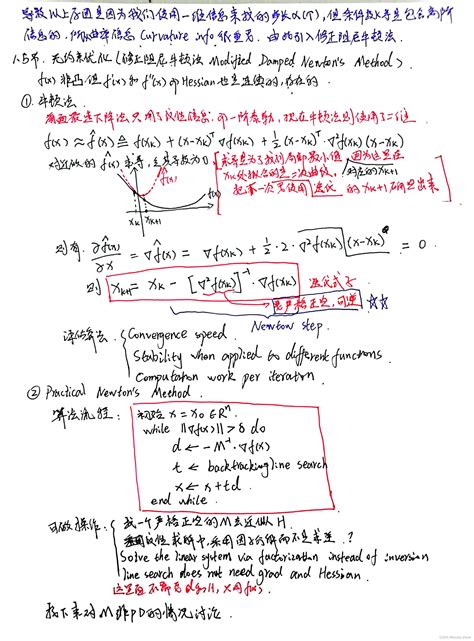 导致以上原因是因为我们使用一维信息来找的步长α(t), 但条件数K等是包含高阶
信息的, 所以曲率信息 Curvature info 很重要. 由此引入修正阻尼牛顿法.
1.5节. 无约束优化 (修正阻尼牛顿法 Modified Damped Newton's Method)
f(x) 非凸但 f(x) 和 f'(x) 的 Hessian 也是连续的, 存在的.
① 牛顿法.
前面最速下降法只用了线性信息, 即一阶导数, 现在牛顿法则使用了二维
f(x) ≈ f̂(x) ≜ f(xₖ) + (x-xₖ)ᵀ ∇f(xₖ) + ½ (x-xₖ)ᵀ ∇²f(xₖ) (x-xₖ)
对近似的 f̂(x) 求导, 且导数为0
求导是为了找到局部极小值, 因为这里在
xₖ处拟合的是二次曲线, 对应的xₖ₊₁
的 xₖ₊₁ 不断迭出来
f̂(x)
f(x)
xₖ xₖ₊₁
则有. ∂f̂(x)/∂x = ∇f̂(x) = ∇f(xₖ) + ½·2·∇²f(xₖ) (x-xₖ) = 0
则 xₖ₊₁ = xₖ - [∇²f(xₖ)]⁻¹·∇f(xₖ) 迭代式子
需严格正定, 可逆 ☆☆
Newton step.
评估算法: Convergence speed.
Stability when applied to different functions
Computation work per iteration.
② Practical Newton's Method.
算法流程:
初始 x = x₀ ∈ Rⁿ.
while ‖∇f(x)‖ > δ do
d ← -M⁻¹·∇f(x)
t ← backtracking line search
x ← x + td.
end while.
可做操作: 找一个严格正定的M去近似H.
线性求解中, 采用因子分解而不是求逆 ?
Solve the linear system via factorization instead of inversion
line search does not need grad and Hessian.
接下来对M非PD的情况讨论.